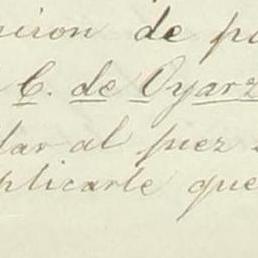 icion de pa
C. de Oyarz
dar al juez
plicarle que